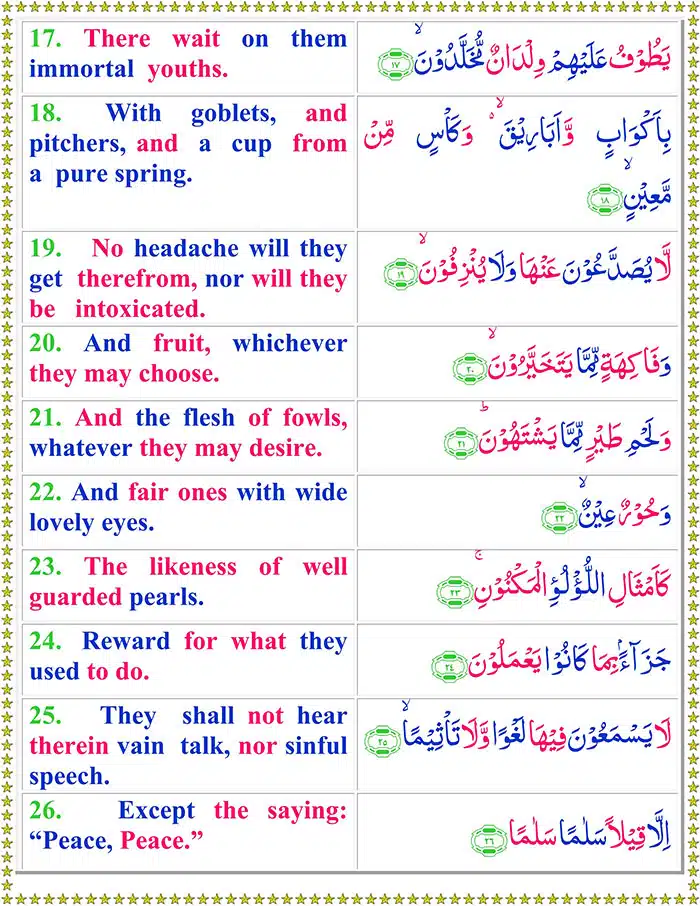 17. There wait on them
immortal youths.
يَطُوْفُ عَلَيْهِمْ وِلْدَانٌ مُّخَلَّدُوْنَۙ ۱۷
18. With goblets, and
pitchers, and a cup from
a pure spring.
بِاَكْوَابٍ وَّاَبَارِيْقَ ۙ۬ وَكَاْسٍ مِّنْ
مَّعِيْنٍۙ ۱۸
19. No headache will they
get therefrom, nor will they
be intoxicated.
لَّا يُصَدَّعُوْنَ عَنْهَا وَلَا يُنْزِفُوْنَۙ ۱۹
20. And fruit, whichever
they may choose.
وَفَاكِهَةٍ مِّمَّا يَتَخَيَّرُوْنَۙ ۲۰
21. And the flesh of fowls,
whatever they may desire.
وَلَحْمِ طَيْرٍ مِّمَّا يَشْتَهُوْنَؕ ۲۱
22. And fair ones with wide
lovely eyes.
وَحُوْرٌ عِيْنٌۙ ۲۲
23. The likeness of well
guarded pearls.
كَاَمْثَالِ اللُّؤْلُؤِ الْمَكْنُوْنِۚ ۲۳
24. Reward for what they
used to do.
جَزَآءًۢ بِمَا كَانُوْا يَعْمَلُوْنَ ۲۴
25. They shall not hear
therein vain talk, nor sinful
speech.
لَا يَسْمَعُوْنَ فِيْهَا لَغْوًا وَّلَا تَاْثِيْمًاۙ ۲۵
26. Except the saying:
“Peace, Peace.”
اِلَّا قِيْلًا سَلٰمًا سَلٰمًا ۲۶